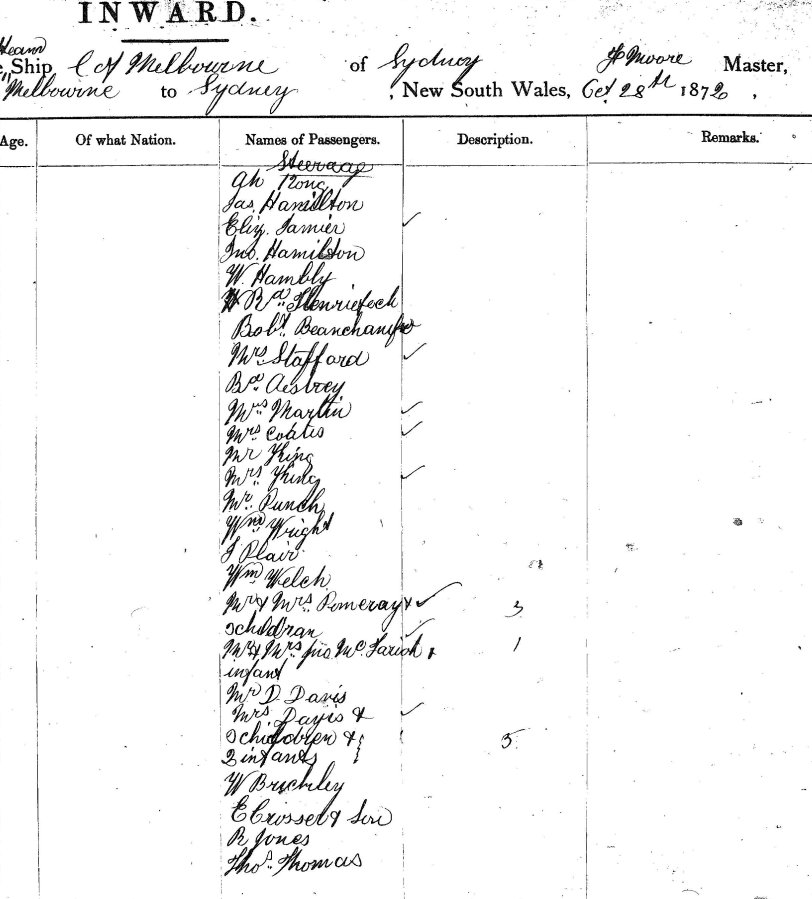 INWARD.
Steam
Ship C of Melbourne of Sydney J Moore Master,
Melbourne to Sydney , New South Wales, Oct 28th 1872 ,
Age. Of what Nation. Names of Passengers. Description. Remarks.
Steerage
Ah Kong
Jas. Hamilton
Eliz. Jamier
Jno. Hamilton
W. Hambly
Rd.
Robt.
Mrs. Stafford
Bd.
Mrs. Martin
Mrs Coates
Mr King
Mrs. King
Mr. Punch
Wm Wright
J Plair
Wm Welch
Mr & Mrs. Pomeray & 3
3 childran
Mr & Mrs. Jno. Mc & 1
infant
Mr D. Davis
Mrs Davis &
3 children & 5
2 infants
W
E Crosset & Son
R Jones
Thos. Thomas